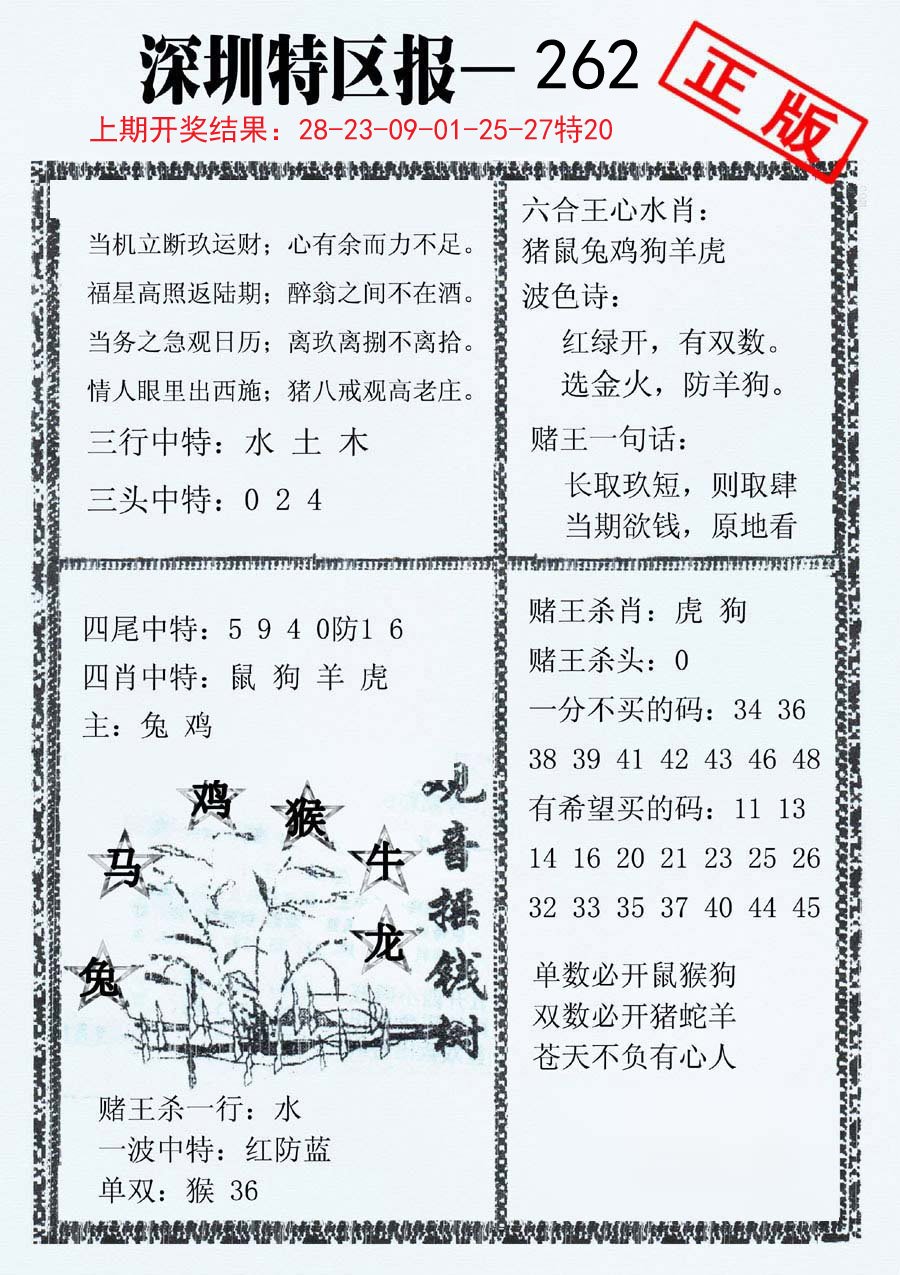 深圳特区报— 262
正版
上期开奖结果：28-23-09-01-25-27特20
当机立断玖运财；心有余而力不足。
福星高照返陆期；醉翁之间不在酒。
当务之急观日历；离玖离捌不离拾。
情人眼里出西施；猪八戒观高老庄。
三行中特：水 土 木
三头中特：0 2 4
六合王心水肖：
猪鼠兔鸡狗羊虎
波色诗：
红绿开，有双数。
选金火，防羊狗。
赌王一句话：
长取玖短，则取肆
当期欲钱，原地看
四尾中特：5 9 4 0防1 6
四肖中特：鼠 狗 羊 虎
主：兔 鸡
鸡
猴
马
牛
龙
兔
观音摇钱树
赌王杀一行：水
一波中特：红防蓝
单双：猴 36
赌王杀肖：虎 狗
赌王杀头：0
一分不买的码：34 36
38 39 41 42 43 46 48
有希望买的码：11 13
14 16 20 21 23 25 26
32 33 35 37 40 44 45
单数必开鼠猴狗
双数必开猪蛇羊
苍天不负有心人